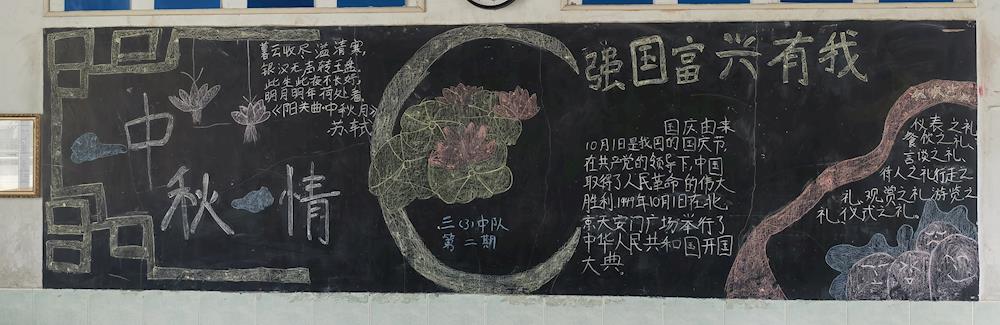 暮云收尽溢清寒,
银汉无声转玉盘,
此生此夜不长好,
明月明年何处看。
《阳关曲·中秋月》
苏轼
中秋情
三(3)中队
第二期
强国富兴有我
国庆由来
10月1日是我国的国庆节,
在共产党的领导下,中国
取得了人民革命的伟大
胜利.1949年10月1日在北
京天安门广场举行了
中华人民共和国开国
大典。
仪表之礼、
餐饮之礼、
言谈之礼、
待人之礼.行走之
礼.观赏之礼.游览之
礼.仪式之礼。